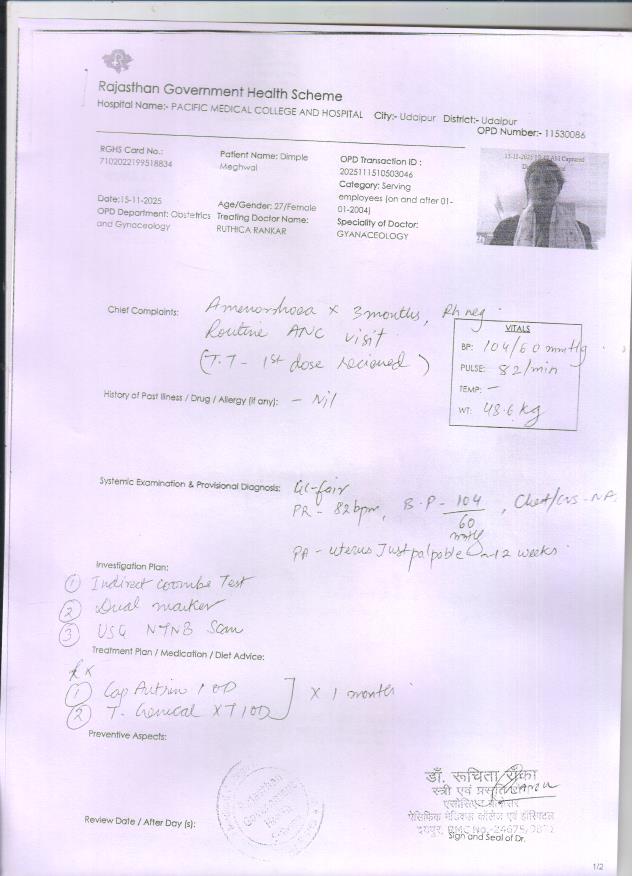 Rajasthan Government Health Scheme
Hospital Name:- PACIFIC MEDICAL COLLEGE AND HOSPITAL City:- Udaipur District:- Udaipur
OPD Number:- 11530086
RGHS Card No.:
7102022199518834
Patient Name: Dimple
Meghwal
OPD Transaction ID :
2025111510503046
Category: Serving
employees (on and after 01-
01-2004)
15-11-2025 Captured
Date:15-11-2025
OPD Department: Obstetrics
and Gynocology
Age/Gender: 27/Female
Treating Doctor Name:
RUTHICA RANKAR
Speciality of Doctor:
GYANACEOLOGY
Chief Complaints: Amenorrhoea x 3 months, Rh neg.
Routine ANC visit
(T.T - 1st dose recieved)
VITALS
BP: 104/60 mmHg
PULSE: 82/min
TEMP: -
WT: 48.6 kg
History of Past Illness / Drug / Allergy (if any): - Nil
Systemic Examination & Provisional Diagnosis: GC-fair
PR - 82bpm, B.P - 104/60 mmHg, Chest/CVS - NA
PA - uterus Just palpable ~12 weeks.
Investigation Plan:
① Indirect coombs Test
② Dual marker
③ USG NTNB Scan
Treatment Plan / Medication / Diet Advice:
Rx
① Cap Autrin 1 OD
② T. Gemcal XT 1OD ] x 1 month.
Preventive Aspects:
डॉ. रूचिता राँका
स्त्री एवं प्रसूति
एसोसिएट प्रोफेसर
पेसिफिक मेडिकल कॉलेज एवं हॉस्पिटल
उदयपुर, RMC No.-24675/
Sign and Seal of Dr.
Review Date / After Day (s):
1/2